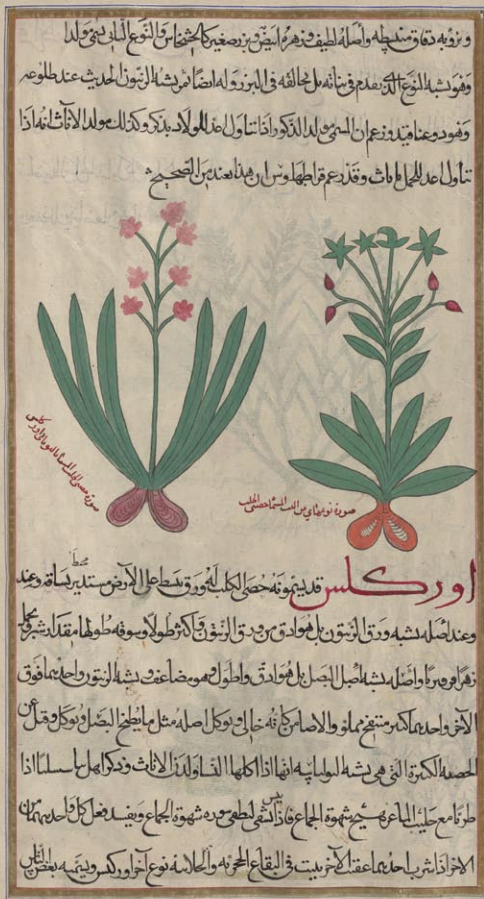 وبزره دقاق منبسطه وأصله لطيف وزهره ابيض وبزر صغير كالخشخاش والنوع الثاني يسمى ولدا
وهو يشبه النوع الذي تقدم في نباته بل يخالفه في البزر وله ايضا ثمر يشبه الزيتون الحديث عند طلوعه
وهو ذو عناقيد وزعم ان المسمى مولد الذكور اذا تناول اعد للمولاد بذكر وكذلك مولد الاناث انه اذا
تناول اعد للحمل باناث وقد زعم قراطيوس ان هذا بعيد من الصحيح
صورة نوع ثاني من المسما خصى الكلب
صورة خصى الكلب المسما باليوناني اوركس
اوركلس قد يسمونه خصى الكلب له ورق منبسط على الارض مستدير بساقه وعند
وعند أصله يشبه ورق الزيتون بل هو ادق من ورق الزيتون واكثر طولا وسوقه طولها مقدار شبر وله
زهر فرفيري وأصله يشبه أصل البصل بل هو ادق واطول وهو مضاعف ويشبه الزيتون واحديهما فوق
الاخر واحديهما كبير منتفخ مملو والاخر ضامر كانه خالي ويوكل اصله مثل ما يطبخ البصل ويوكل وقيل عن
الخصية الكبيرة التي هي يشبه البولبيه انها اذا اكلها النسا ولدن الاناث وذكر اهل تاسليا اذا
طريا مع حليب الماعز هيج شهوة الجماع فاذا اسقى يابس لطفي سورة شهوة الجماع ويفسد فعل كل واحد بهما من
الاخر اذا شرب احديهما عقيب الاخر ينبت في البقاع الحجرية والجلاسة نوع آخر اوركس ويسميه بعض الناس